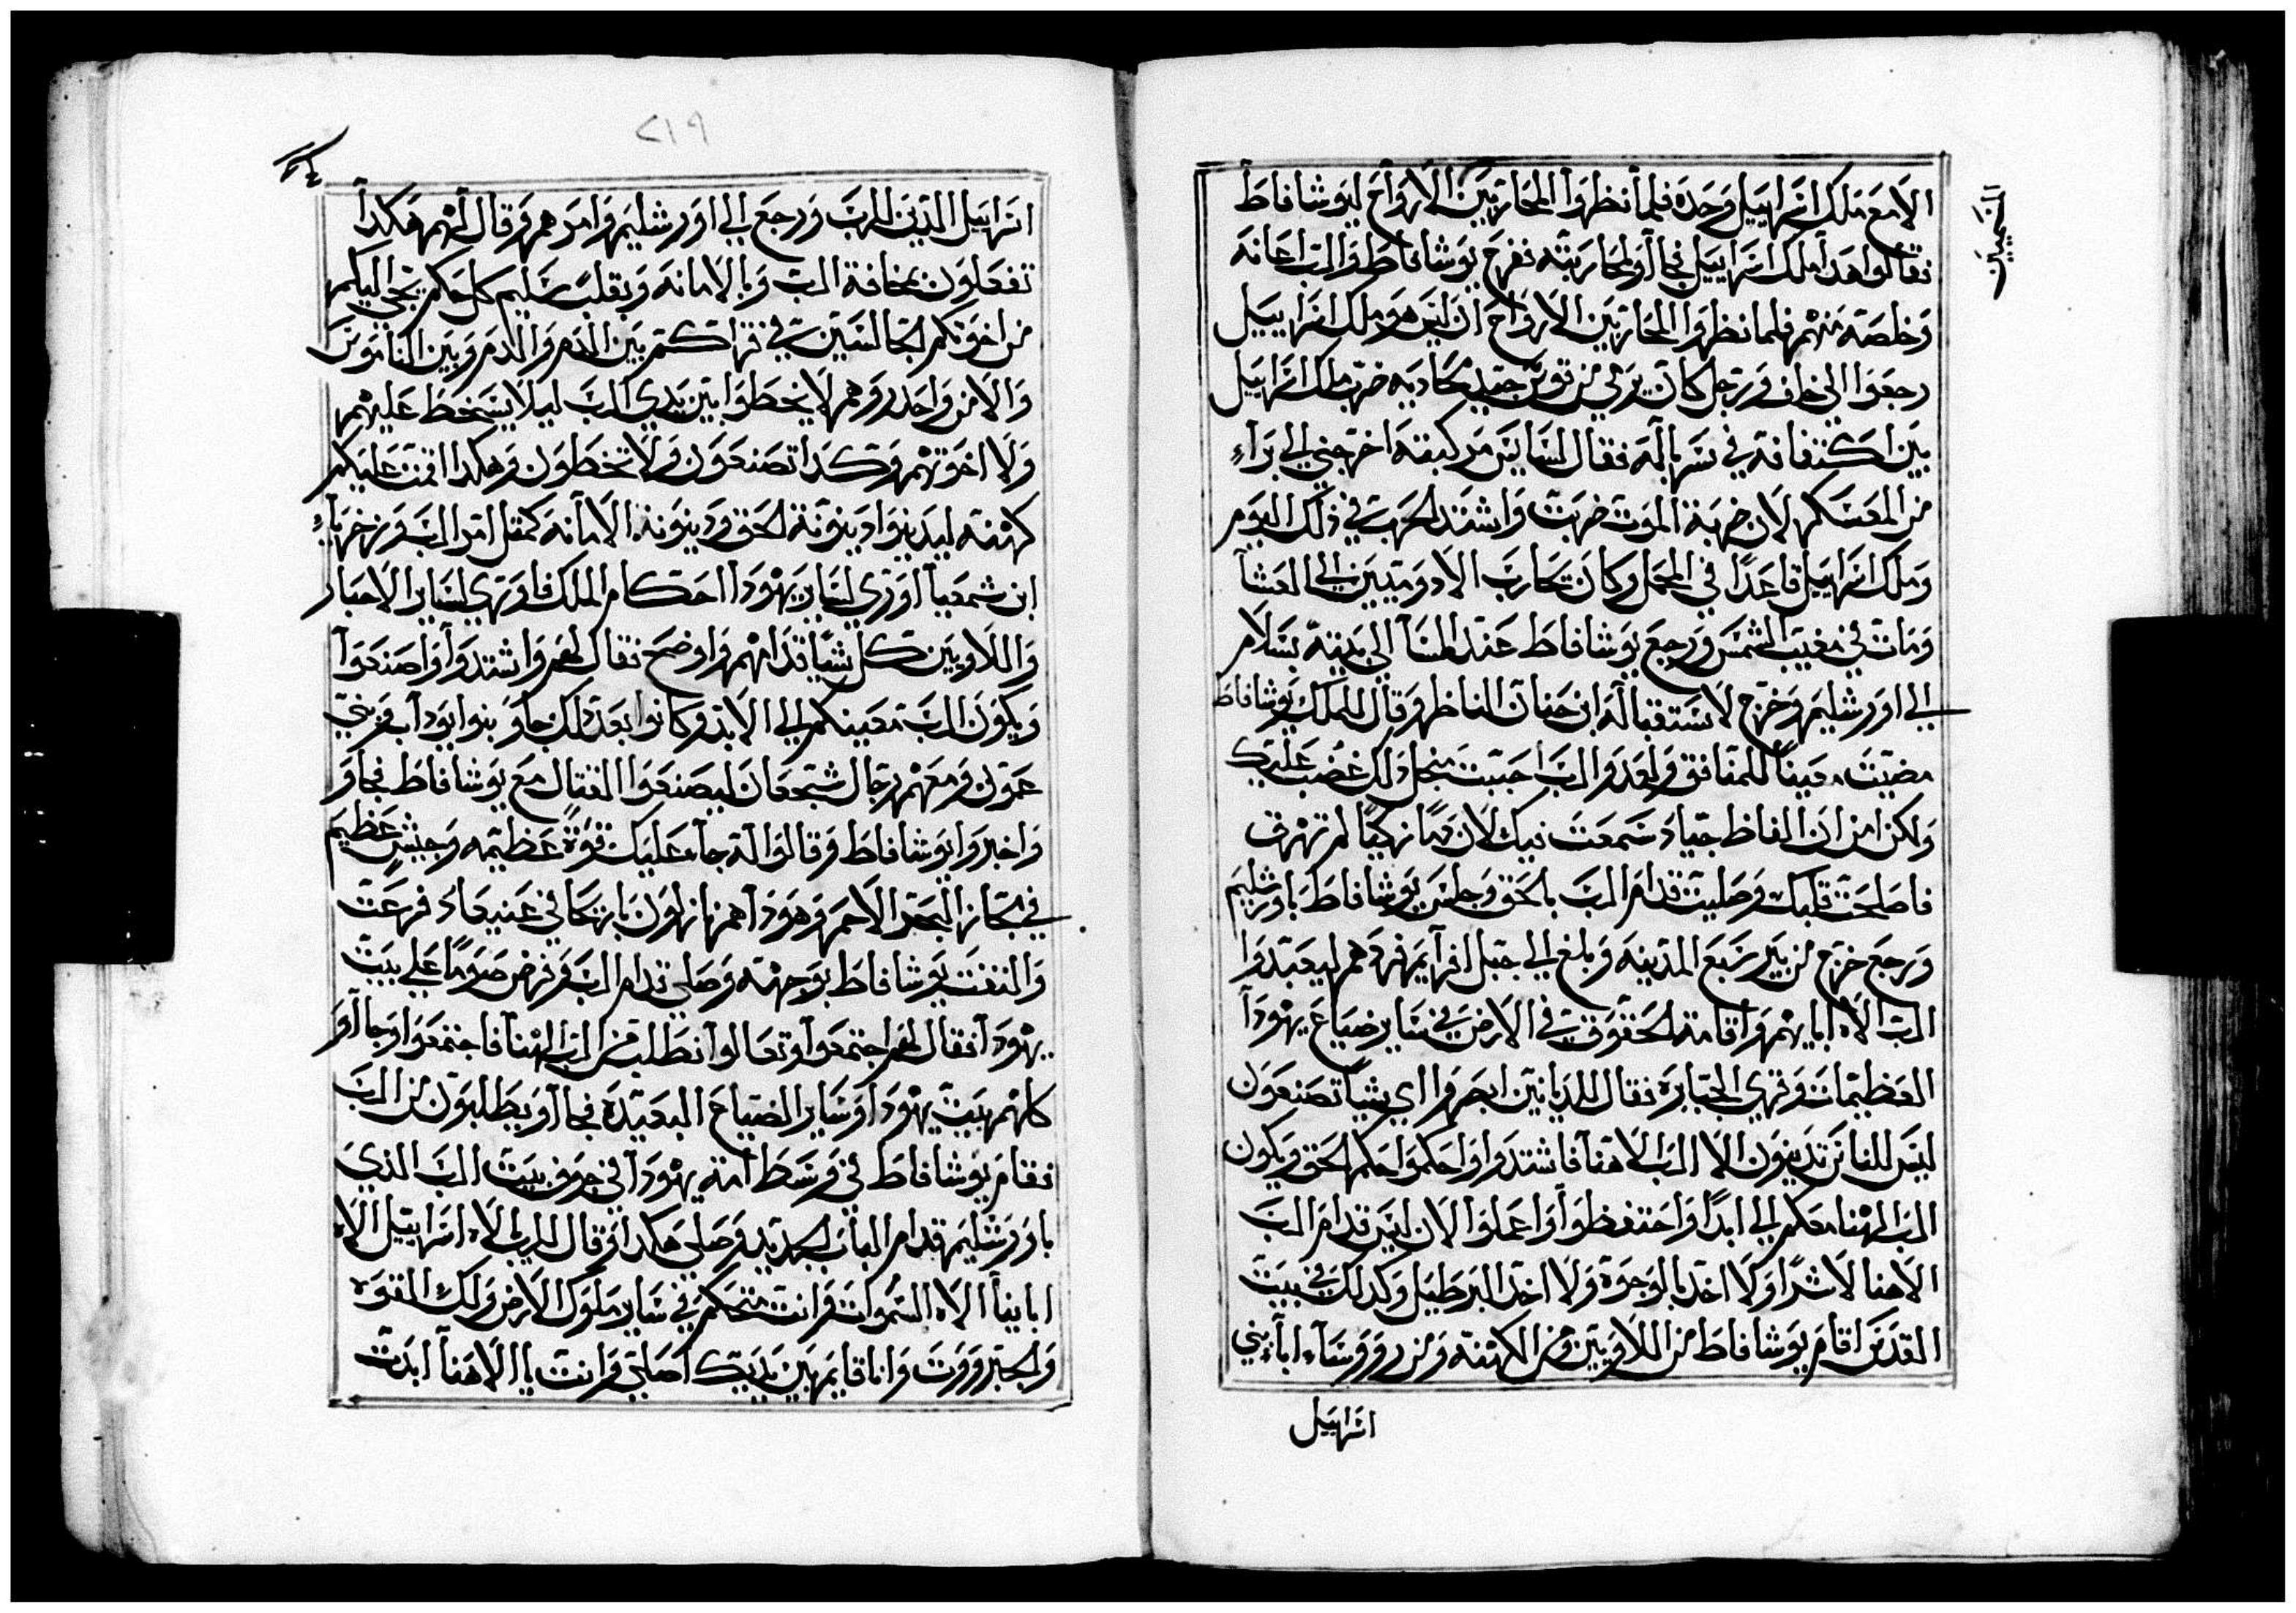 الخمسين
الامع ملك اسراييل وحده فلما نظروا المحاربين الارواح ليوشافاط
فقالوا هدا ملك اسراييل فجاآو لمحاربته فصرخ يوشافاط والرب اعانه
وخلصه منهم فلما نظروا المحاربين الارواح ان ليس هو ملك اسراييل
رجعوا الي خلف ورجل كان يرمي من قوس جيد كاديه ضرب ملك اسراييل
بين اكتفافه في سرباله فقال لسايس مركبته اخرجني الي براء
من المعسكر لان ضربة الموت ضربت واشتد الحرب في ذلك اليوم
وملك اسراييل قاعدا في المحمل وكان تحارب الادوميين الي العشا
ومات في مغيب الشمس ورجع يوشافاط عند المسآ الي بيته بسلام
الي اورشليم وخرج لاستقباله ابن حنان الناظر وقال للملك يوشافاط
مضيت معينا للمنافق ولعدو الرب احببت من اجل ذلك غضب عليك
ولكن من ان الفاظ جياد سمعت فيك لان دما زكيا لم تهرق
فاصلحت قلبك وصليت قدام الرب بالحق وجلس يوشافاط باورشليم
ورجع خرج من بير سبع المدينه وبلغ الي جبل افرآيم فردهم ليعبدوا
الرب الاه ابايهم واقامة الحقوق في الارض في ساير ضياع يهودآ
العظيمات وقري الجبابره فقال للديانين ابصروا اي شيا تصنعون
ليس للناس تدينون الا الرب الاهنا فاشتدوا واحكموا حكم الحق ويكون
الرب الهنا معكم الي ابدا واحتفظوا واعملوا الان ليس قدام الرب
الاهنا لا شرا ولا اخد بالوجوه ولا اخد البرطيل وكدلك في بيت
القدس اقام يوشافاط من اللاويين ومن الكهنه ومن رووساء ابآء بني
اسراييل
٢١٩
اسراييل الدين للرب ورجع الي اورشليم وامرهم وقال لهم هكدا
تفعلون بمخافة الرب وبالامانه وبقلب سليم كل حكم يجي اليكم
من اخوتكم الجالسين في قراكم بين الدم والدم وبين الناموس
والامر واحدروهم لا يخطوا بين يدي الرب ليلا يسخط عليهم
ولا اخوتهم وكدا تصنعون ولا تخطون وهكدا اقمت عليكم
كهنته ليدينوا دينونة الحق ودينونة الامانه كمثل امر الرب وزخرياء
ابن شمعيا اوري لساير يهودا احكام الملك فاوري لساير الاحبار
واللاويين كل شيا قدامهم واوضح فقال لهم واشتدوآ واصنعوآ
ويكون الرب معينكم الي الابد وكانوا بعد ذلك جاو بنوا يوداب وبني
عمون ومعهم رجال شجعان ليصنعوا القتال مع يوشافاط فجاو
واخبروا يوشافاط وقالوا له جاء عليك قوة عظيمه وجيش عظيم
في مجاز البحر الاحمر وهودا هم نازلون باريحا في عنيعاد فرعت
والتفت يوشافاط بوجهته وصلي قدام الرب وفرض صوما علي بيت
يهودآ فقال لهم اجتمعوآ وتعالوا نطلب من الرب الهنا فاجتمعوا وجاآو
كلهم بيت يهودا وساير الضياع البعيده فجاآو يطلبون من الرب
فقام يوشافاط في وسط امة يهودآ في جوف بيت الرب الدي
باورشليم قدام الباب الجديد وصلي هكدا وقال للرب الاه اسراييل الاه
ابايناآ الاه السموات وانت متحكم في ساير ملوك الارض ولك القوه
والجبرووت وانا قايم بين يديك اصلي وانت يا الاهنآ ابدت